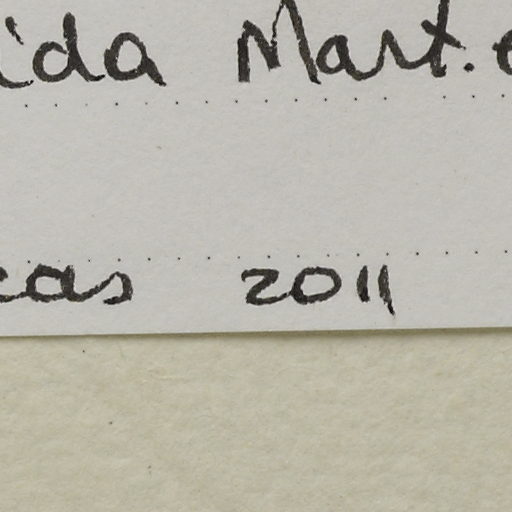 ida Mart.
eas 2011